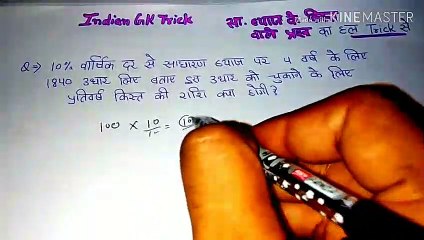 Indian GK Trick
सा. ब्याज के किस्त
वाले प्रश्न का हल Trick से
KINEMASTER
Q ⇒ 10% वार्षिक दर से साधारण ब्याज पर 4 वर्ष के लिए
1840 उधार लिए बताए इस उधार को चुकाने के लिए
प्रतिवर्ष किस्त की राशि क्या होगी?
100 × 10/1- = 10